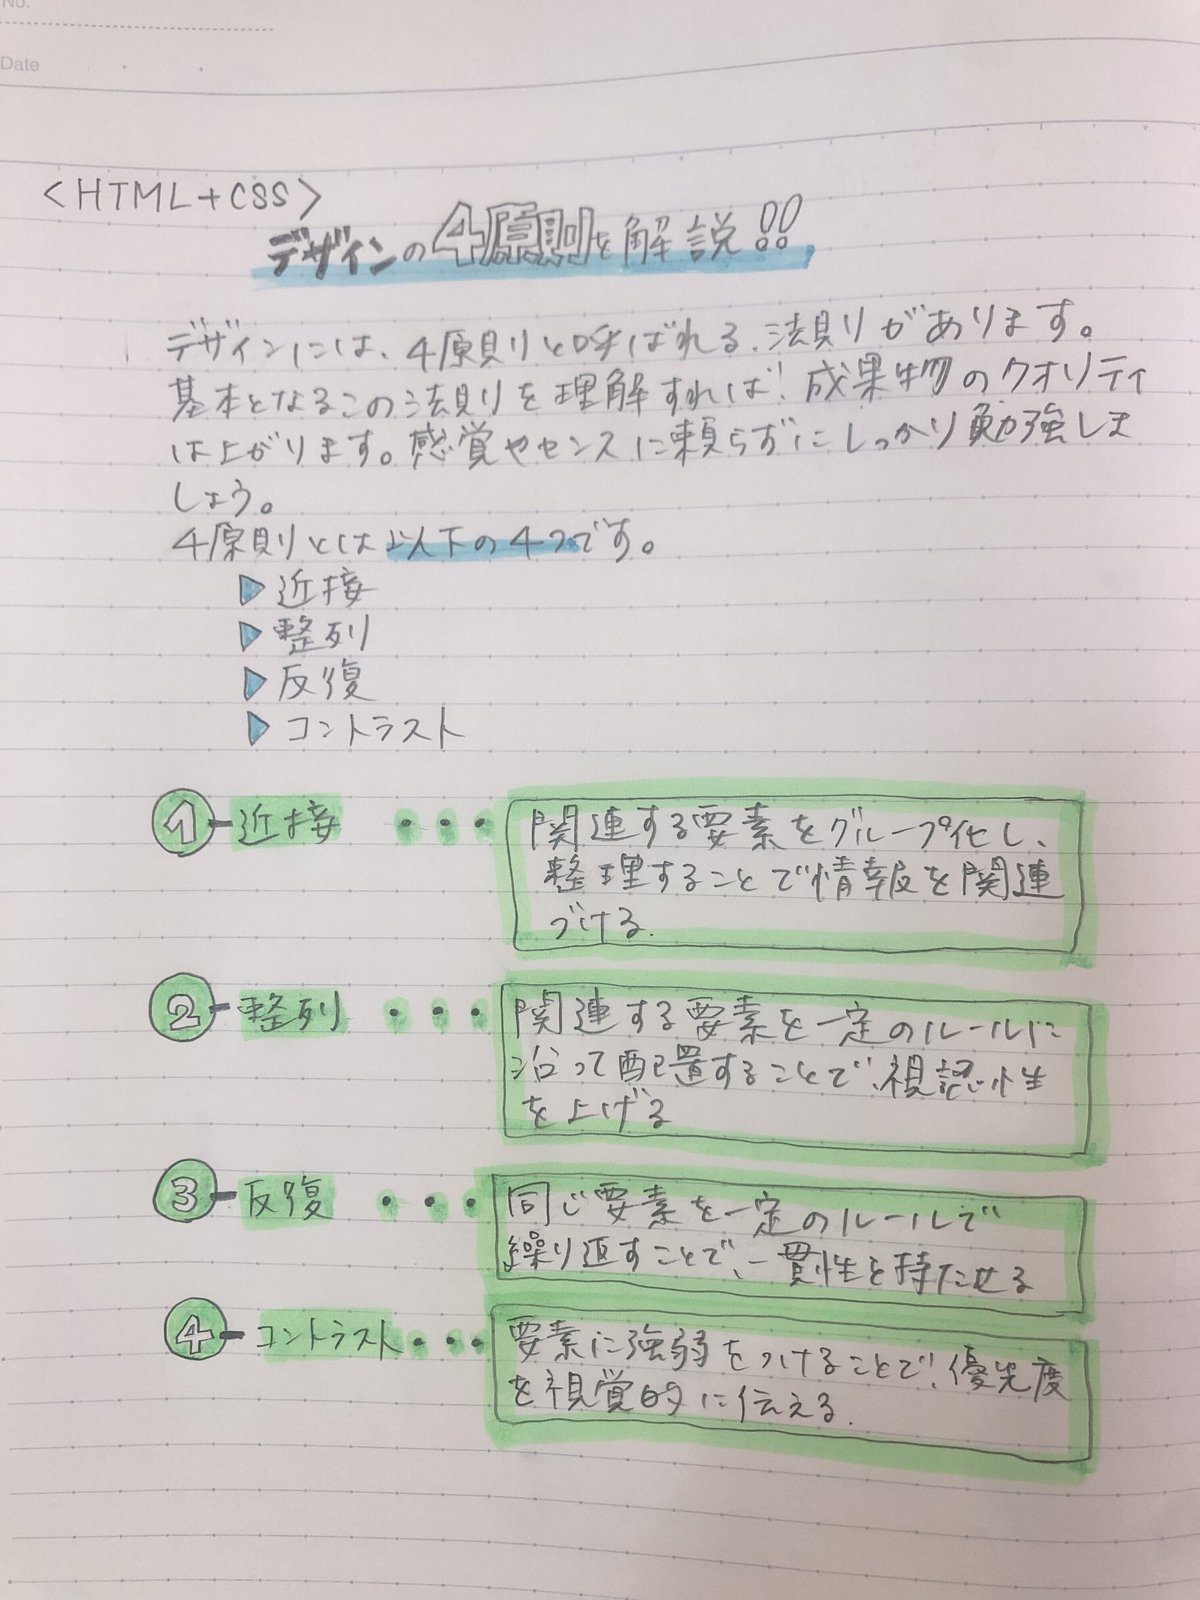 No.
Date
<HTML+CSS>
デザインの4原則を解説!!
デザインには、4原則と呼ばれる、法則があります。
基本となるこの法則を理解すれば、成果物のクオリティ
は上がります。感覚やセンスに頼らずにしっかり勉強しま
しょう。
4原則とは以下の4つです。
▷近接
▷整列
▷反復
▷コントラスト
①-近接 ・・・ 関連する要素をグループ化し、
整理することで情報を関連
づける.
②-整列 ・・・ 関連する要素を一定のルールに
沿って配置することで、視認性
を上げる
③-反復 ・・・ 同じ要素を一定のルールで
繰り返すことで、一貫性を持たせる
④-コントラスト・・・ 要素に強弱をつけることで、優先度
を視覚的に伝える.